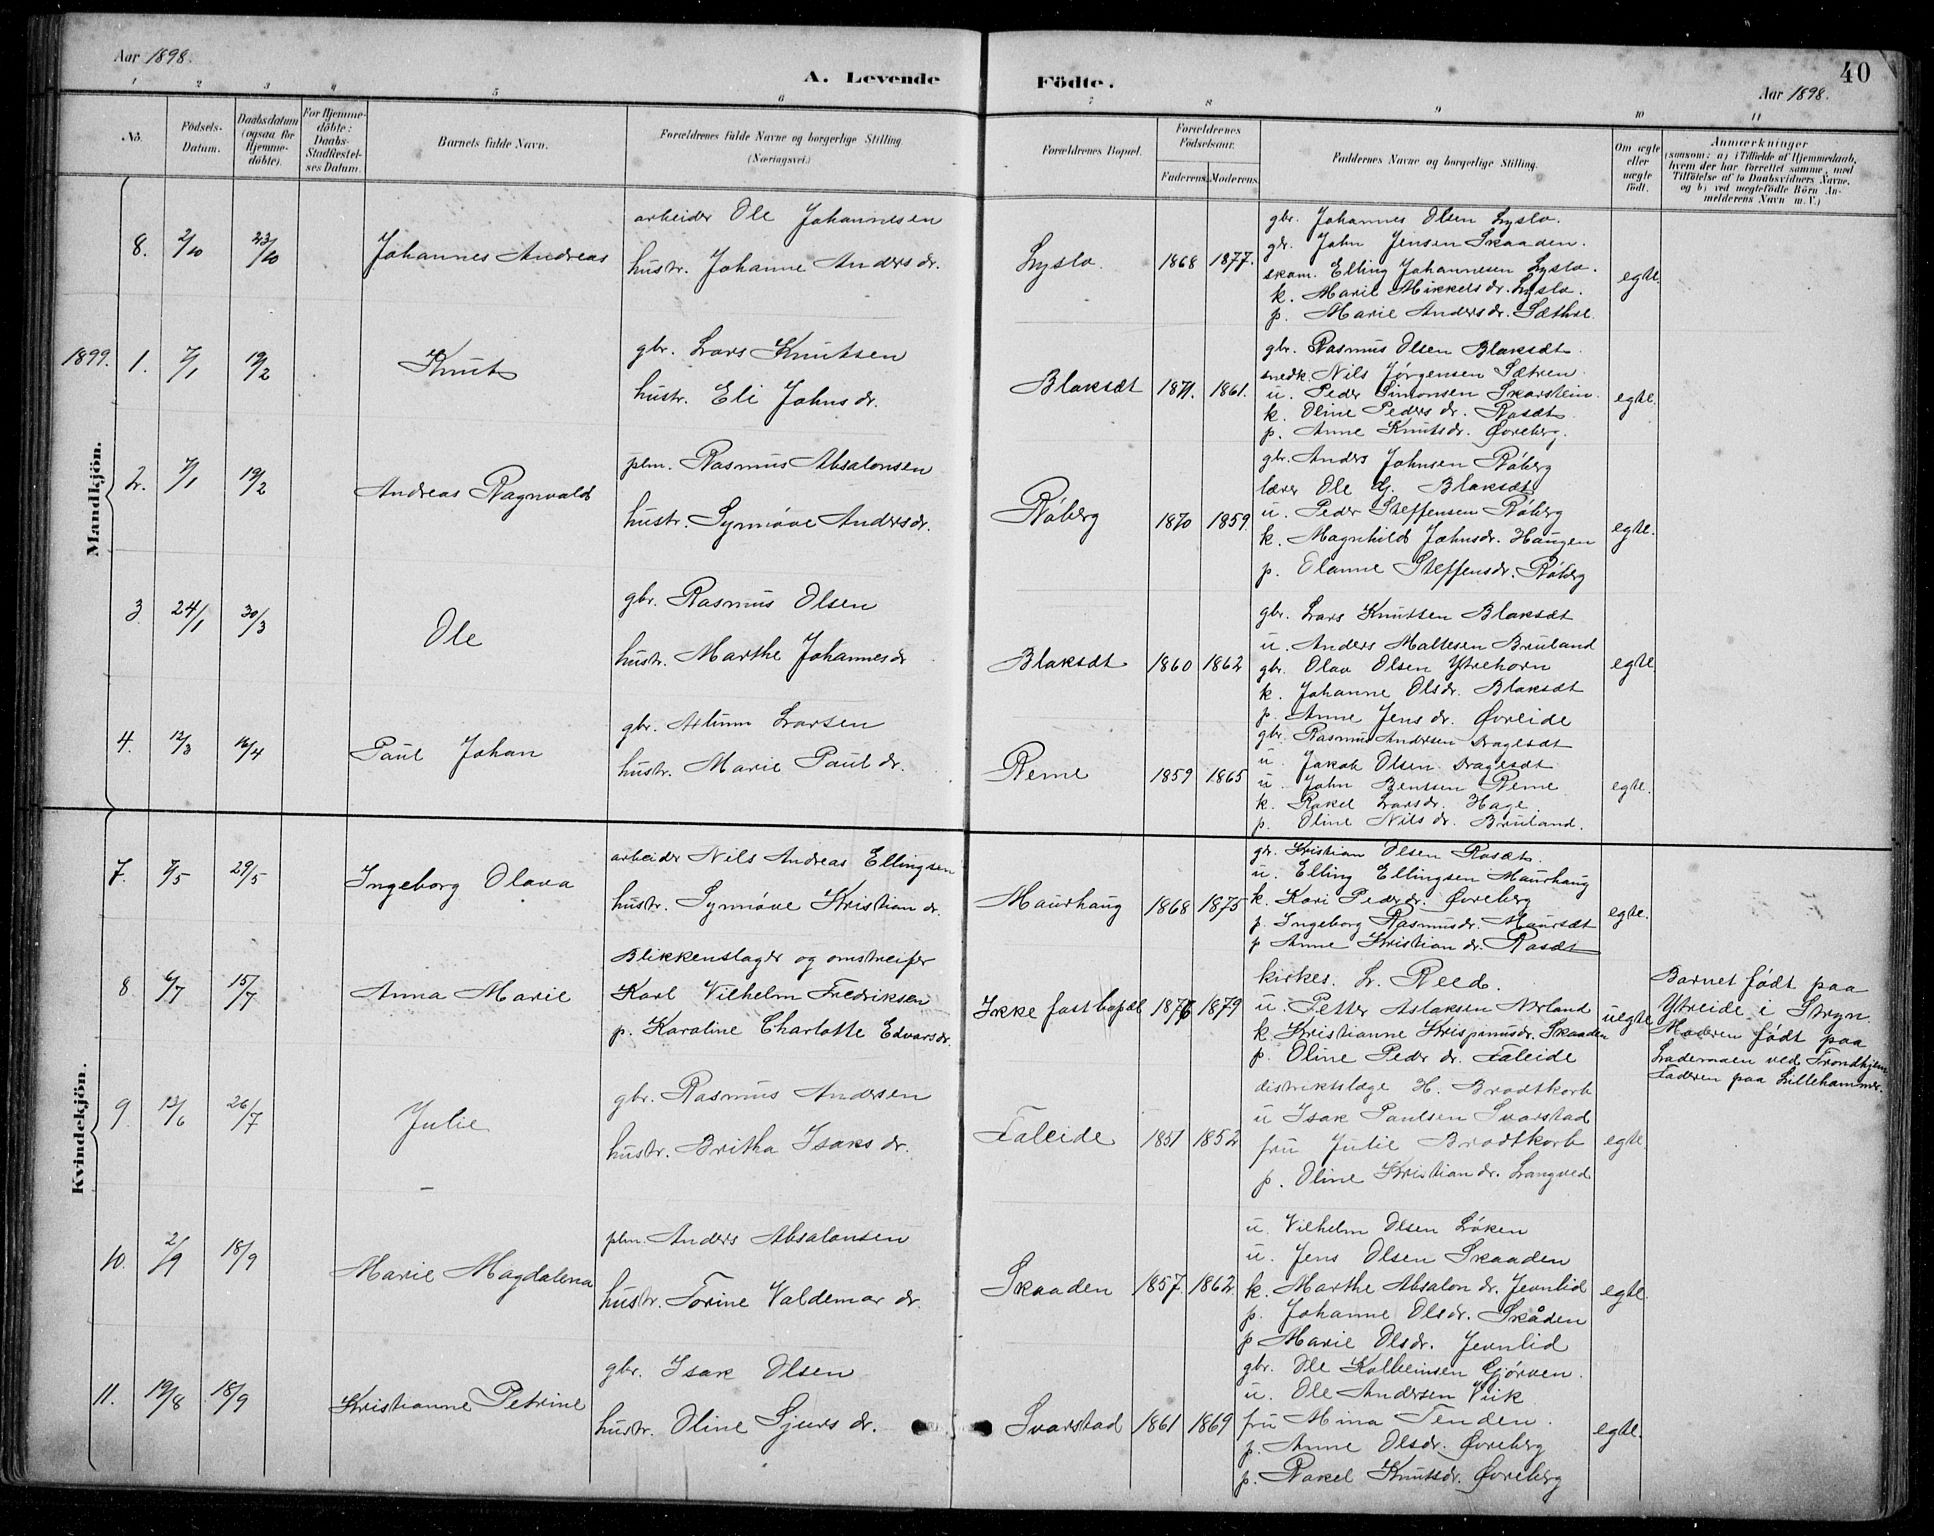 Aar 1898.
A. Levende Födte.
40
Aar 1898.
1 2 3 4 5 6 7 8 9 10 11
No.
Födsels-Datum.
Daabsdatum (ogsaa for Hjemmedöbte).
For Hjemmedöbte: Daabs-Stadfestelses Datum.
Barnets fulde Navn.
Forældrenes fulde Navne og borgerlige Stilling (Næringsvei.)
Forældrenes Bopæl.
Forældrenes Födselsaar.
Faderens. Moderens.
Faddernes Navne og borgerlige Stilling.
Om ægte eller uægte födt.
Anmærkninger
(saasom: a) i Tilfælde af Hjemmedaab, hvem der har forrettet samme, med Tilföielse af to Daabsvidners Navne, og b) ved uægtefödte Börn Anmelderens Navn m. V.)
Mandkjön.
8. 2/10 23/10 Johannes Andreas
arbeider Ole Johannesen
hustr. Johanne Anders dr.
Lyslo. 1868 1877.
gbr. Johannes Olsen Lyslo.
gbr. John Jensen Skaaden.
skom. Elling Johannesen Lyslo.
k. Marie Mikkels dr. Lyslo.
p. Marie Anders dr. Sæthre.
egte.
1899. 1. 7/1 19/2 Knut
gbr. Lars Knutsen
hustr. Eli Johns dr.
Blaksæt 1871. 1861.
gbr. Rasmus Olsen Blaksæt.
snedk. Nils Jørgensen Sætren.
u. Peder Simonsen Skarstein.
k. Oline Peders dr. Rasæt.
p. Anne Knutsdr. Øvreberg.
egte.
2. 7/1 19/2 Andreas Ragnvald
plm. Rasmus Absalonsen
hustr. Synnøve Anders dr.
Røberg 1870 1859.
gbr. Anders Johnsen Røberg
lærer Ole Blaksæt
u. Peder Steffensen Røberg
k. Magnhild Johnsdr. Haugen
p. Olanne Steffensdr. Røberg
egte.
3. 24/1 30/3 Ole
gbr. Rasmus Olsen
hustr. Marthe Johannesdr.
Blaksæt 1860 1862
gbr. Lars Knutsen Blaksæt
u. Anders Maltesen Bruland
gbr. Olav Olsen Ytrehorn
k. Johanne Olsdr. Blaksæt
p. Anne Jens dr. Øvreide
egte
4. 12/3 16/4 Paul Johan
gbr. Larsen
hustr. Marie Paul dr.
Reme 1859 1865
gbr. Rasmus Andersen Dragesæt
u. Jakob Olsen Dragesæt
u. John Bentsen Reme
k. Rakel Larsdr. Hage.
p. Oline Nils dr. Bruland.
egte.
Kvindekjön.
7. 7/5 29/5 Ingeborg Olava
arbeider Nils Andreas Ellingsen
hustr. Synnøve Kristian dr.
Maurhaug 1868 1875
gbr. Kristian Olsen Rasæt.
u. Elling Ellingsen Maurhaug
k. Kari Peder dr. Øvreberg
p. Ingeborg Rasmusdr. Maursæt
p. Anne Kristian dr. Rasæt
egte.
8 6/7 15/7 Anna Marie
Blikkenslager og omstreifer
Karl Vilhelm Fredriksen
p. Karoline Charlotte Edvarsdr.
Ikke fast bopæl 1876 1879
kirkes. L. Reed.
u. Petter Aslaksen Nerland
k. Kristianne Krispinusdr. Skaaden
p. Oline Peder dr. Faleide
uegte
Barnet født paa
Ytreide i Stryn.
Moderen født paa
Lademoen ved Trondhjem
Faderen paa Lillehammer.
9. 13/6 26/7 Julie
gbr. Rasmus Andersen
hustr. Britha Isaks dr.
Faleide 1851 1852
distriktslæge H. Brodtkorb
u Isak Paulsen Svarstad
fru Julie Brodtkorb
p. Oline Kristian dr. Langved
egte.
10. 2/9 18/9 Marie Magdalena
plm. Anders Absalonsen
hustr. Torine Valdemar dr.
Skaaden 1857. 1862
u. Vilhelm Olsen Løken
u. Jens Olsen Skaaden
k. Marthe Absalon dr. Jevnlid
p. Johanne Olsdr. Skåden
p Marie Olsdr. Jevnlid
egte.
11. 19/8 18/9 Kristianne Petrine
gbr. Isak Olsen
hustr. Oline Sjurs dr.
Svarstad 1861 1869
gbr. Ole Kolbeinsen Gjørven.
u. Ole Andersen Viik
fru Mina Tenden.
p. Anne Olsdr. Øvreberg
p. Rakel Knutsdr. Øvreberg
egte.